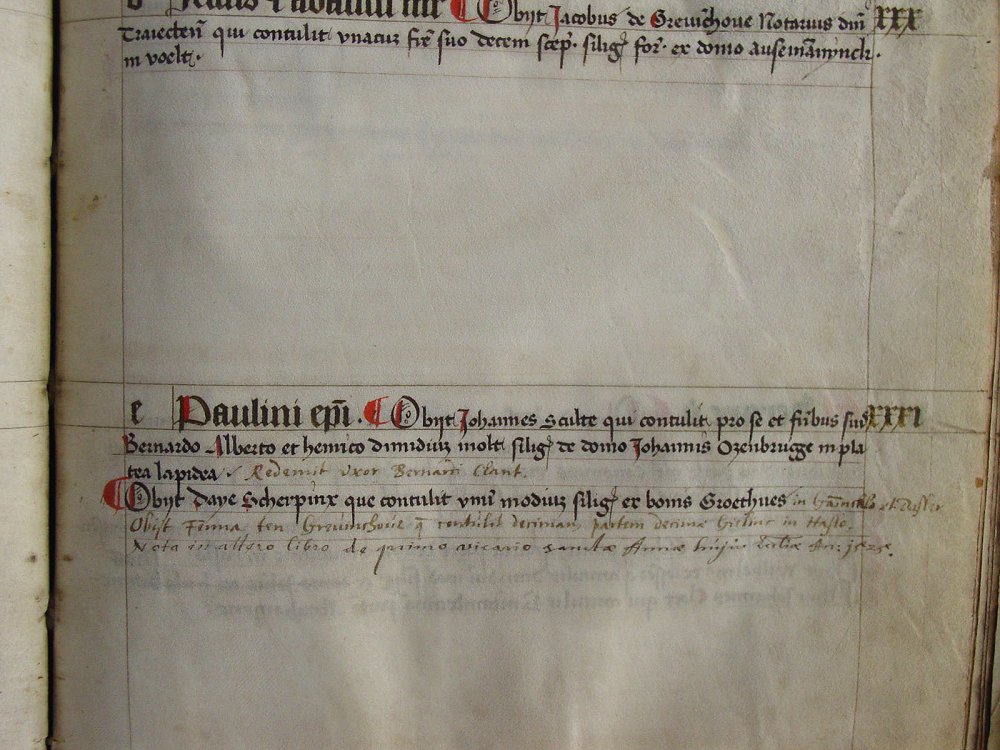 Obijt Jacobus de Grevīchove Notarius dnī XXX
Traiecten̄ qui contulit vnacuz frē suo decem scep. siliḡ for. ex domo
in voelt.
e Paulini epī. Obijt Johannes Sculte qui contulit pro se et frībus suis XXXI
Bernardo Alberto et henrico dimidiuz molt siliḡ de domo Johannis Ozenbrugge in pla
tea lapidea Redemit Vxor Bernardi Clant.
Obijt Daye Scherpinx que contulit vnū modiuz siliḡ ex bonis Groethues in et
Obijt Fenna ten Grevinchove q̄ contulit decimam partem decime in
Nota in altero libro de primo vicario sanctæ Annæ hujus